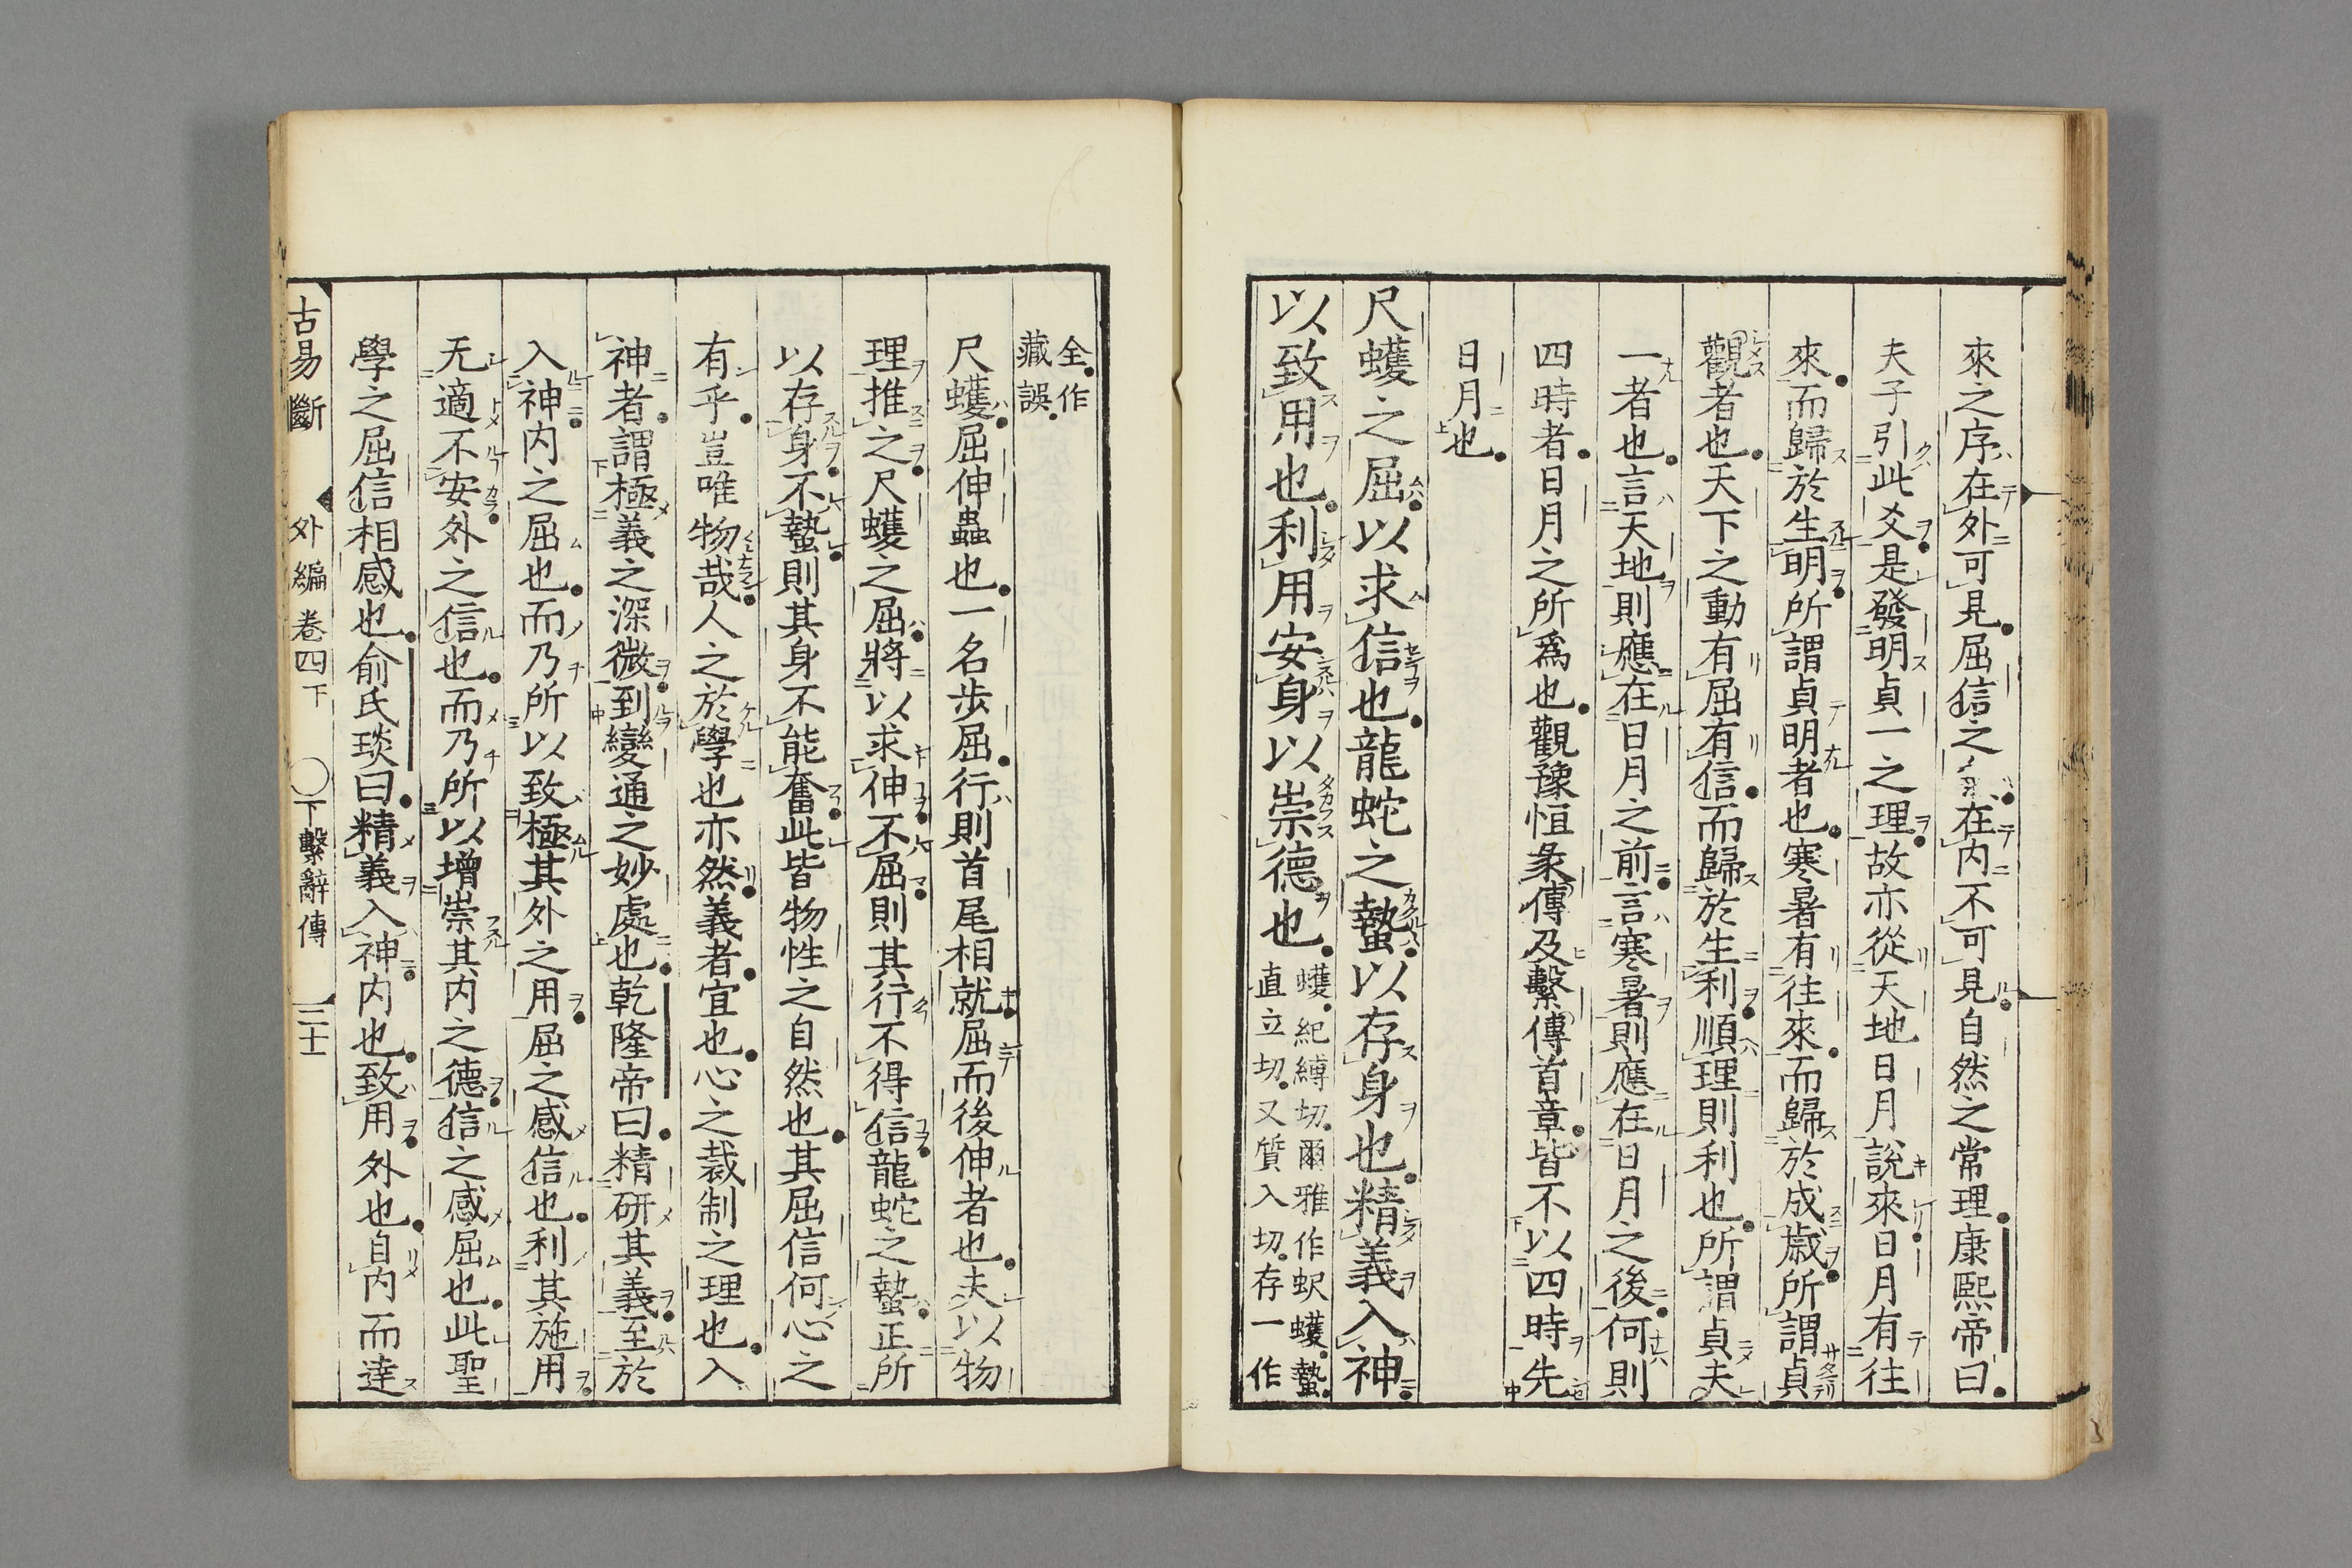 來之序在外可見屈信之在内不可見自然之常理康熙帝曰
夫子引此爻是發明貞一之理故亦從天地日月說來日月有往
來而歸於生明所謂貞明者也寒暑有往來而歸於成歲所謂貞
觀者也天下之動有屈有信而歸於生利順理則利也所謂貞夫
一者也言天地則應在日月之前言寒暑則應在日月之後何則
四時者日月之所爲也觀豫恒彖傳及繫傳首章皆不以四時先
日月也
尺蠖之屈以求信也龍蛇之蟄以存身也精義入神
以致用也利用安身以崇德也
蠖紀縛切爾雅作蚇蠖蟄
直立切又質入切存一作
全作
藏誤
尺蠖屈伸蟲也一名步屈行則首尾相就屈而後伸者也夫以物
理推之尺蠖之屈將以求伸不屈則其行不得信龍蛇之蟄正所
以存身不蟄則其身不能奮此皆物性之自然也其屈信何心之
有乎豈唯物哉人之於學也亦然義者宜也心之裁制之理也入
神者謂極義之深微到變通之妙處也乾隆帝曰精研其義至於
入神内之屈也而乃所以致極其外之用屈之感信也利其施用
无適不安外之信也而乃所以增崇其内之德信之感屈也此聖
學之屈信相感也俞氏琰曰精義入神内也致用外也自内而達
古易斷 外編卷四下 ○下繫辭傳 三十一